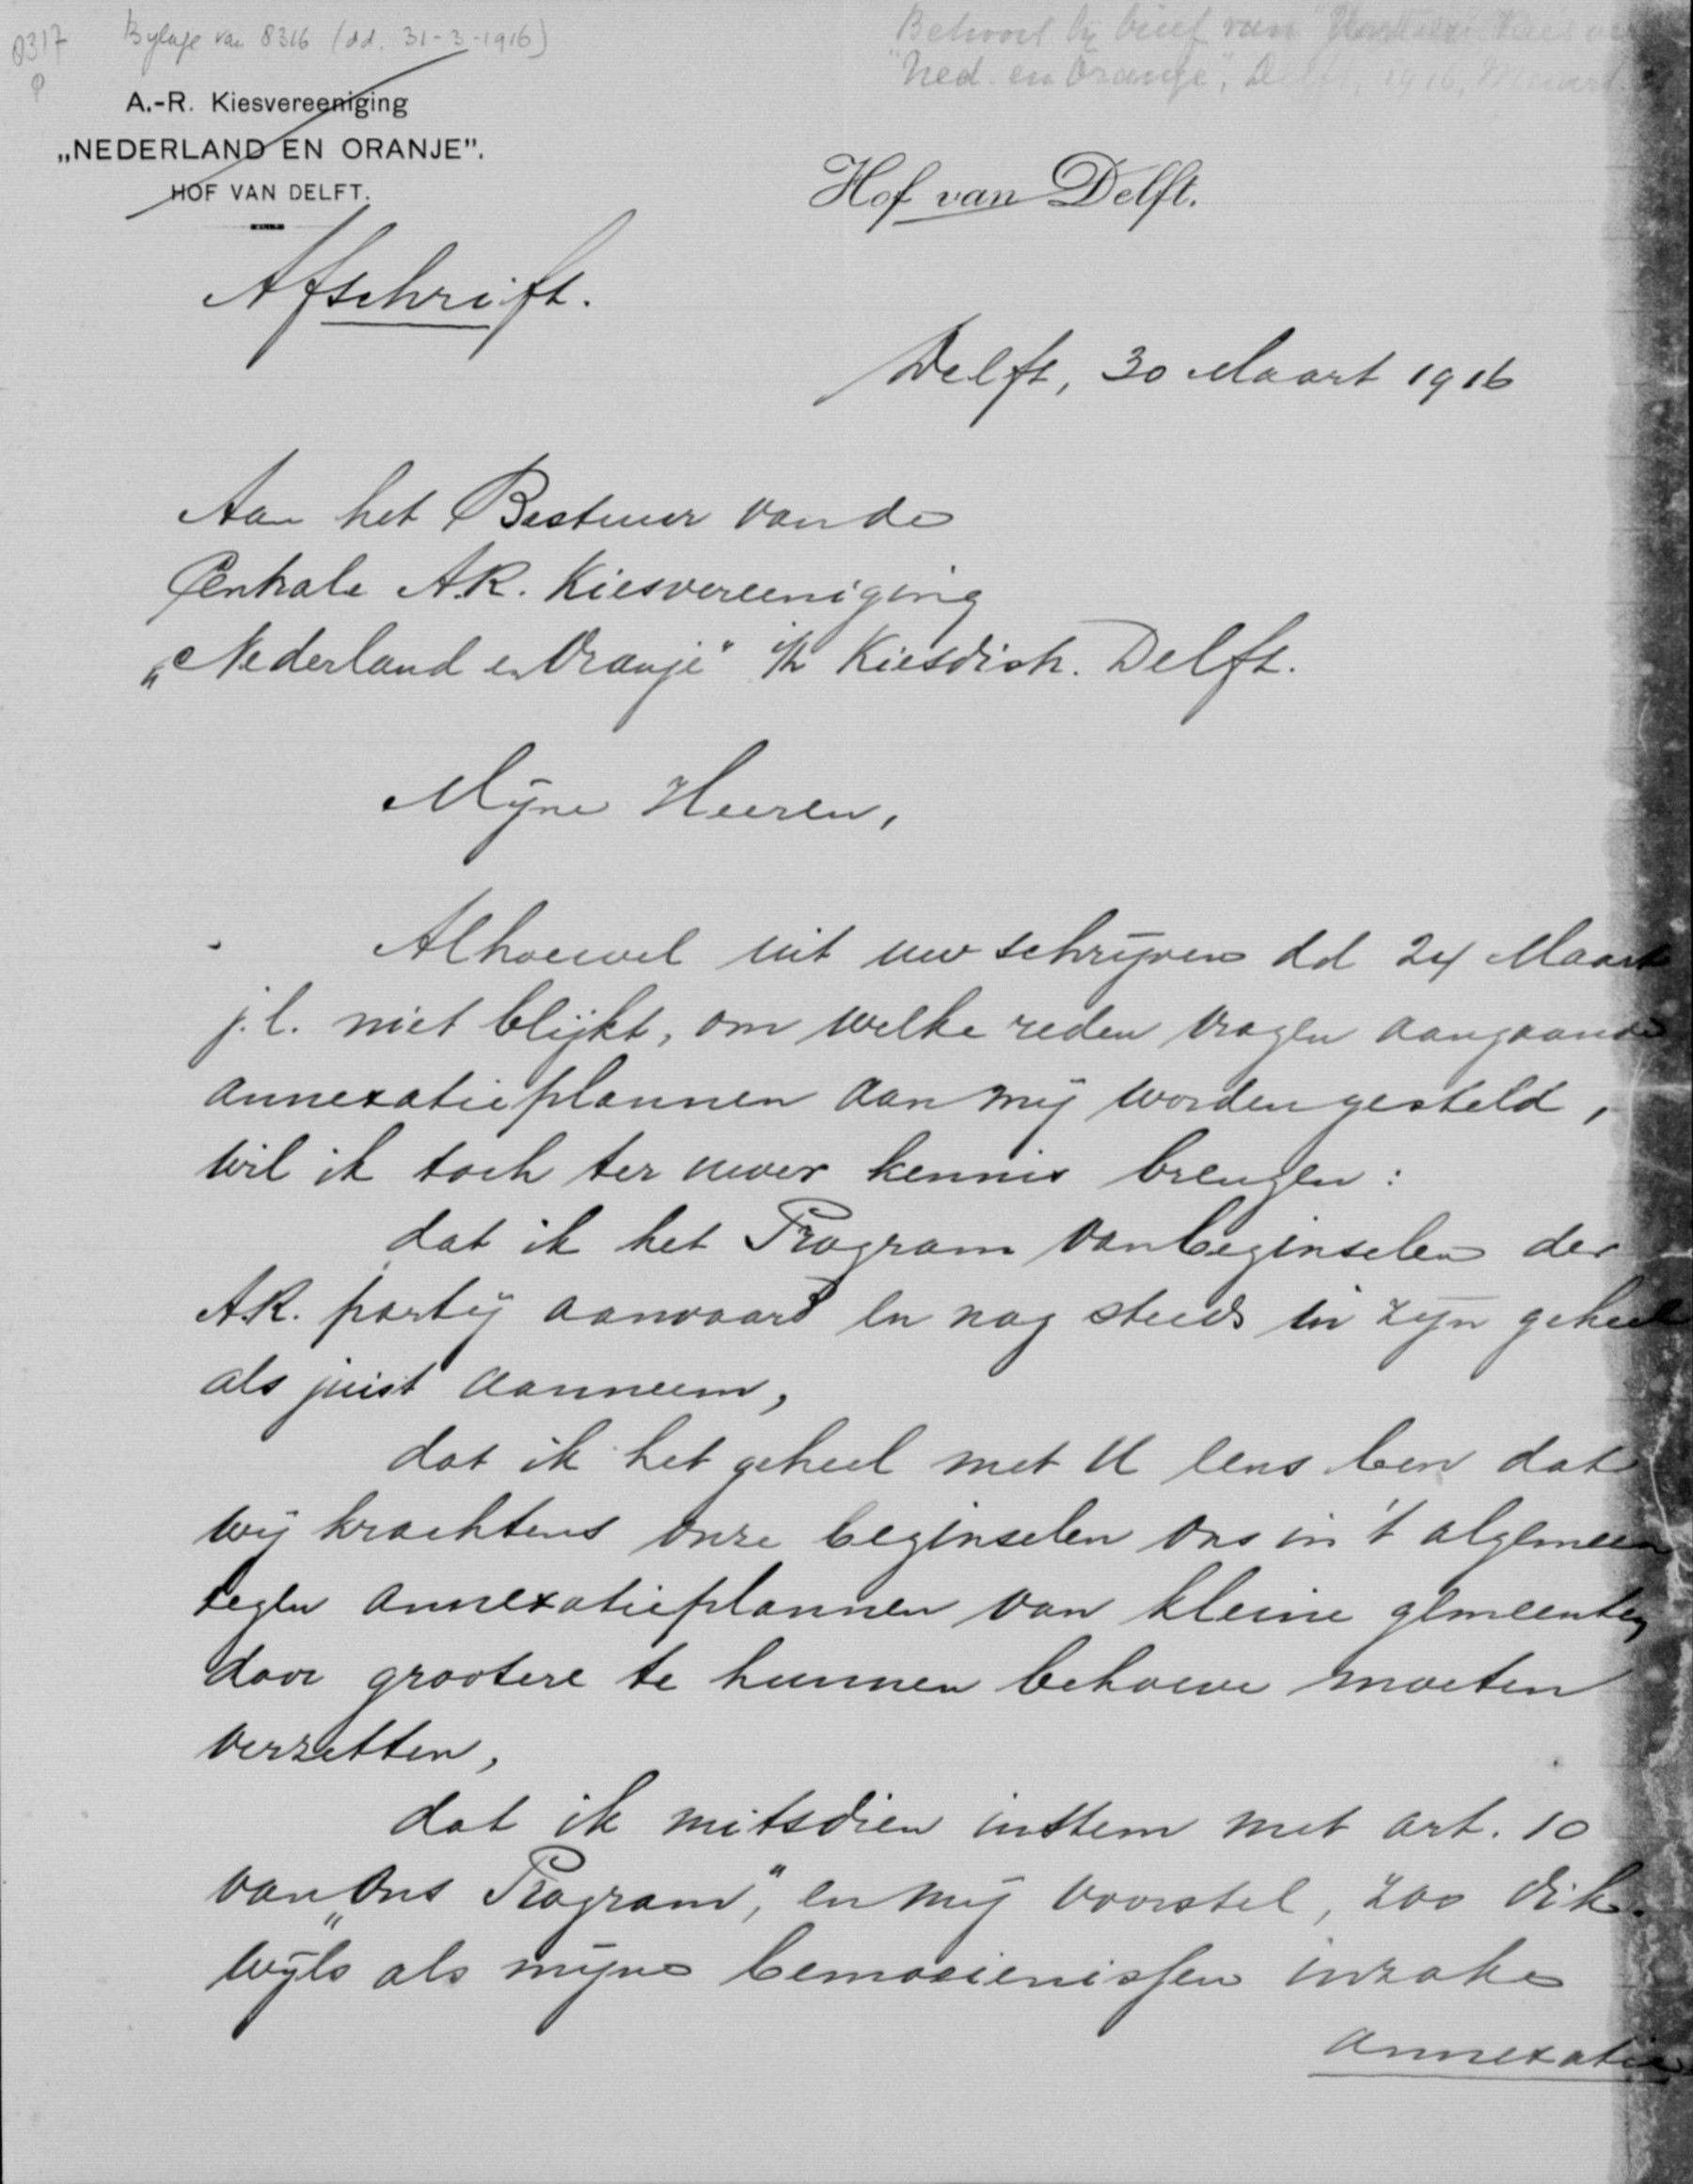 8317 Bylage van 8316 (dd. 31-3-1916)
Behoort bij brief van
"Ned. en Oranje", Delft, 1916, Maart
A.-R. Kiesvereeniging
„NEDERLAND EN ORANJE”.
HOF VAN DELFT.
Hof van Delft.
Afschrift.
Delft, 30 Maart 1916
Aan het Bestuur van de
Centrale A.R. Kiesvereeniging
„Nederland en Oranje" i/h Kiesdistr. Delft.
Mijne Heeren,
Alhoewel uit uw schrijven dd 24 Maart
j.l. niet blijkt, om welke reden vragen aangaande
annexatieplannen aan mij worden gesteld,
wil ik toch ter uwer kennis brengen:
dat ik het Program van beginselen der
A.R. partij aanvaard en nog steeds in zijn geheel
als juist aanneem,
dat ik het geheel met U eens ben dat
wij krachtens onze beginselen ons in 't algemeen
tegen annexatieplannen van kleine gemeenten
door grootere te hunnen behoeve moeten
verzetten,
dat ik mitsdien instem met art. 10
van „Ons Program", en mij voorstel, zoo dik-
wijls als mijne bemoeienissen inzake
annexatie